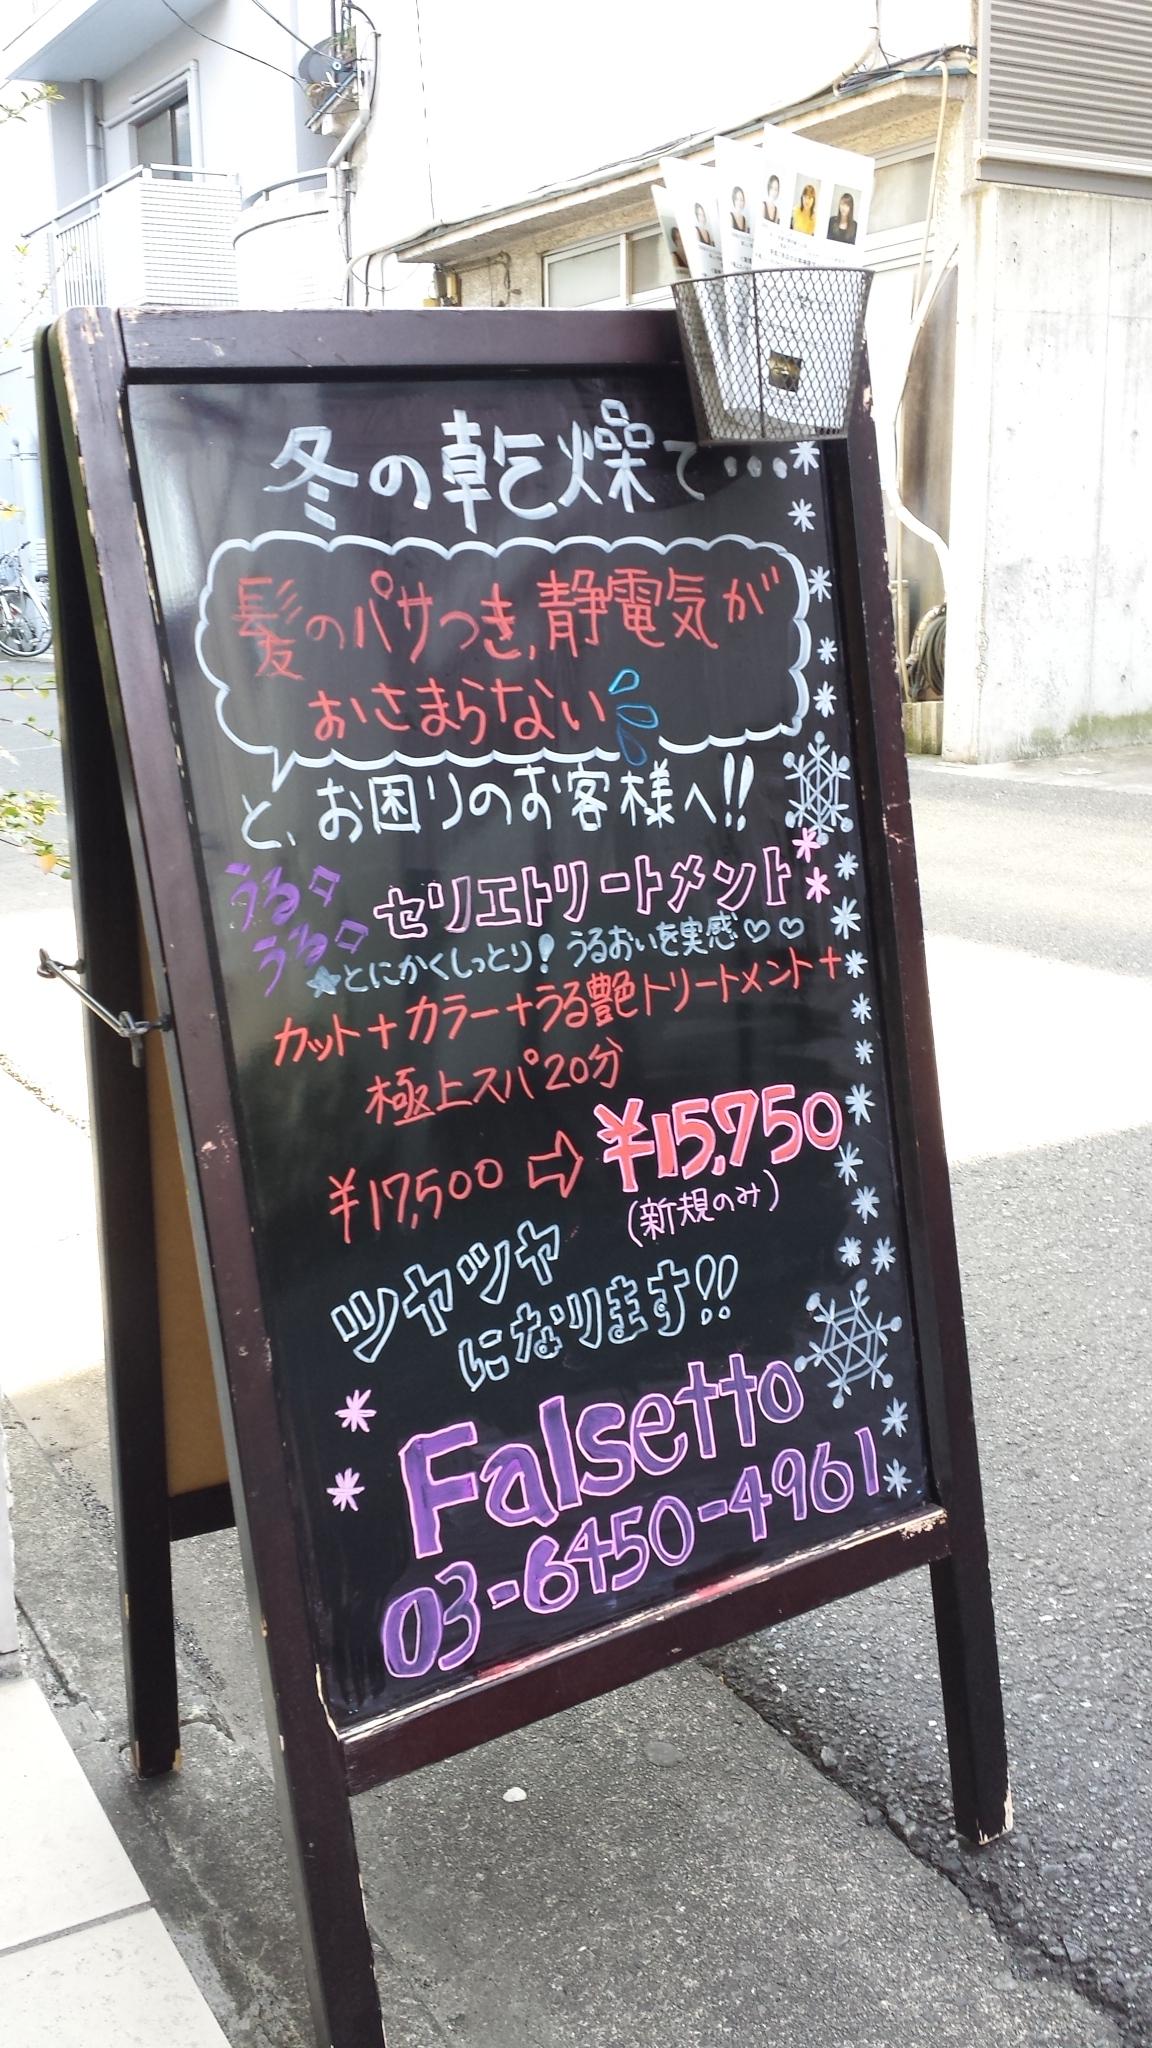 冬の乾燥で…
髪のパサつき、静電気が
おさまらない
と、お困りのお客様へ!!
うる
うる
セリエトリートメント
★とにかくしっとり! うるおいを実感♡♡
カット+カラー+うる艶トリートメント+
極上スパ20分
¥17,500 ⇨ ¥15,750
(新規のみ)
ツヤツヤ
になります!!
Falsetto
03-6450-4961